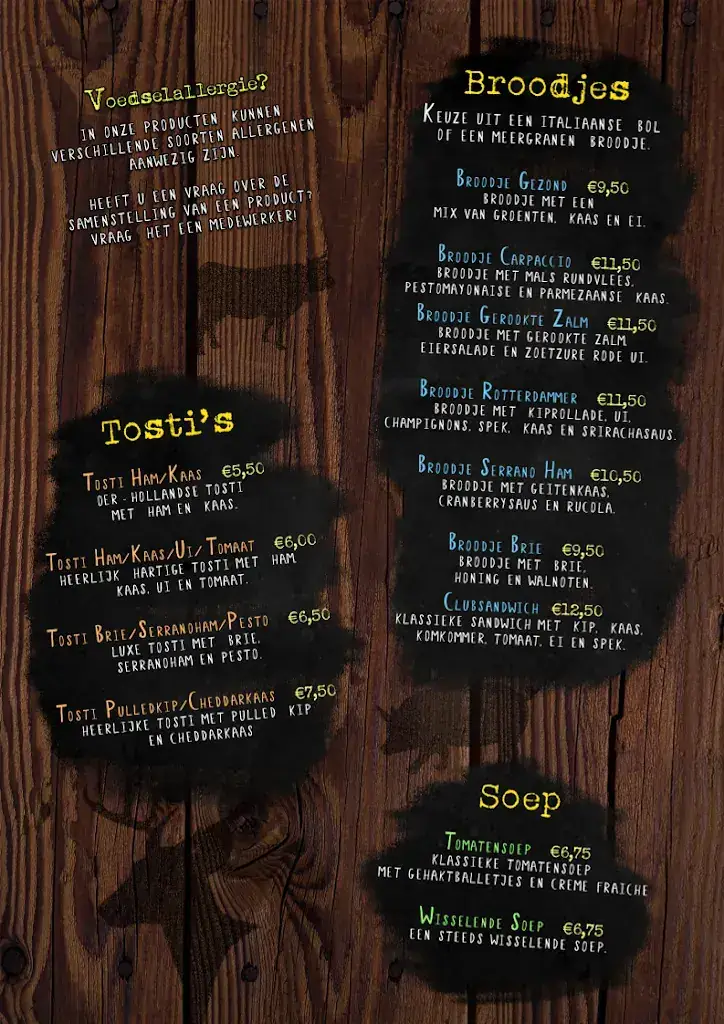 Voedselallergie?
IN ONZE PRODUCTEN KUNNEN
VERSCHILLENDE SOORTEN ALLERGENEN
AANWEZIG ZIJN.
HEEFT U EEN VRAAG OVER DE
SAMENSTELLING VAN EEN PRODUCT?
VRAAG HET EEN MEDEWERKER!
Tosti's
TOSTI HAM/KAAS €5,50
OER-HOLLANDSE TOSTI
MET HAM EN KAAS.
TOSTI HAM/KAAS/UI/TOMAAT €6,00
HEERLIJK HARTIGE TOSTI MET HAM
KAAS, UI EN TOMAAT.
TOSTI BRIE/SERRANOHAM/PESTO €6,50
LUXE TOSTI MET BRIE,
SERRANOHAM EN PESTO.
TOSTI PULLEDKIP/CHEDDARKAAS €7,50
HEERLIJKE TOSTI MET PULLED KIP
EN CHEDDARKAAS
Broodjes
KEUZE UIT EEN ITALIAANSE BOL
OF EEN MEERGRANEN BROODJE.
BROODJE GEZOND €9,50
BROODJE MET EEN
MIX VAN GROENTEN, KAAS EN EI.
BROODJE CARPACCIO €11,50
BROODJE MET MALS RUNDVLEES,
PESTOMAYONAISE EN PARMEZAANSE KAAS.
BROODJE GEROOKTE ZALM €11,50
BROODJE MET GEROOKTE ZALM
EIERSALADE EN ZOETZURE RODE UI.
BROODJE ROTTERDAMMER €11,50
BROODJE MET KIPROLLADE, UI,
CHAMPIGNONS, SPEK, KAAS EN SRIRACHASAUS.
BROODJE SERRANO HAM €10,50
BROODJE MET GEITENKAAS,
CRANBERRYSAUS EN RUCOLA.
BROODJE BRIE €9,50
BROODJE MET BRIE,
HONING EN WALNOTEN.
CLUBSANDWICH €12,50
KLASSIEKE SANDWICH MET KIP, KAAS,
KOMKOMMER, TOMAAT, EI EN SPEK.
Soep
TOMATENSOEP €6,75
KLASSIEKE TOMATENSOEP
MET GEHAKTBALLETJES EN CREME FRAICHE
WISSELENDE SOEP €6,75
EEN STEEDS WISSELENDE SOEP.